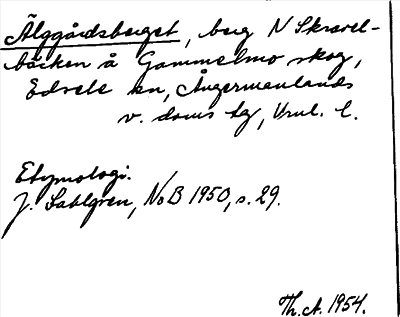 Älggårdsberget, berg N Skravel-
bäcken å Gammelmo skog,
Edsele sn, Ångermanlands
v. doms hg, Vnrl. l.
Etymologi.
J. Sahlgren, NoB 1950, s. 29.
Th. A. 1954.